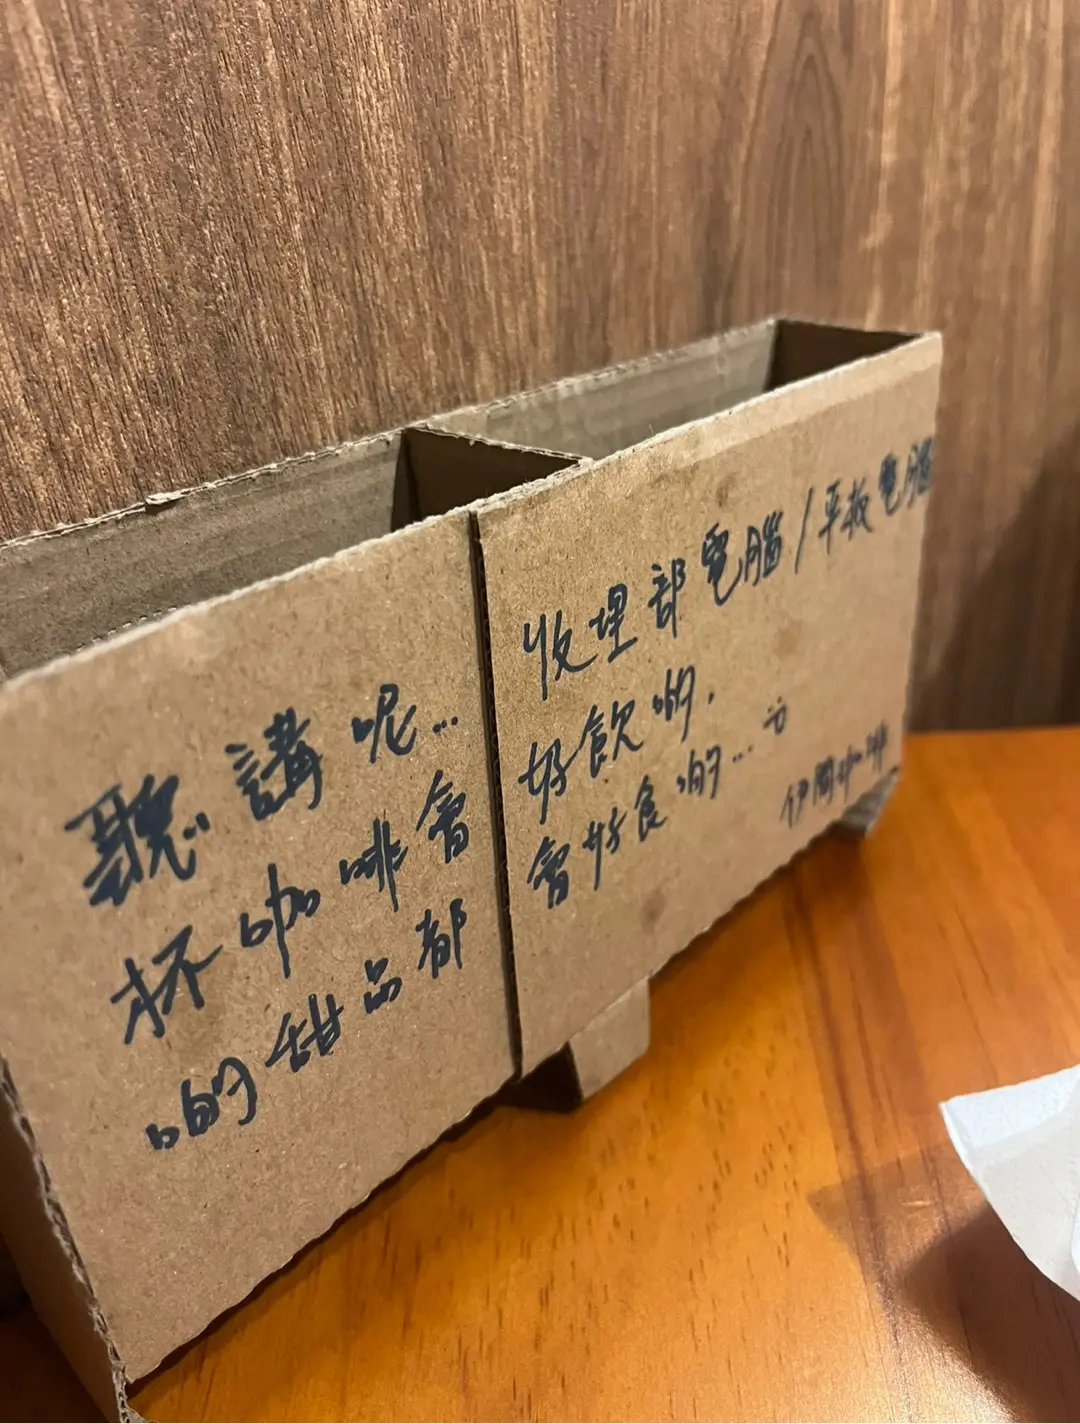 聽講呢... 收埋部電腦/平板電腦
杯咖啡會 好飲啲,
啲甜品都 會好食啲...
咖啡